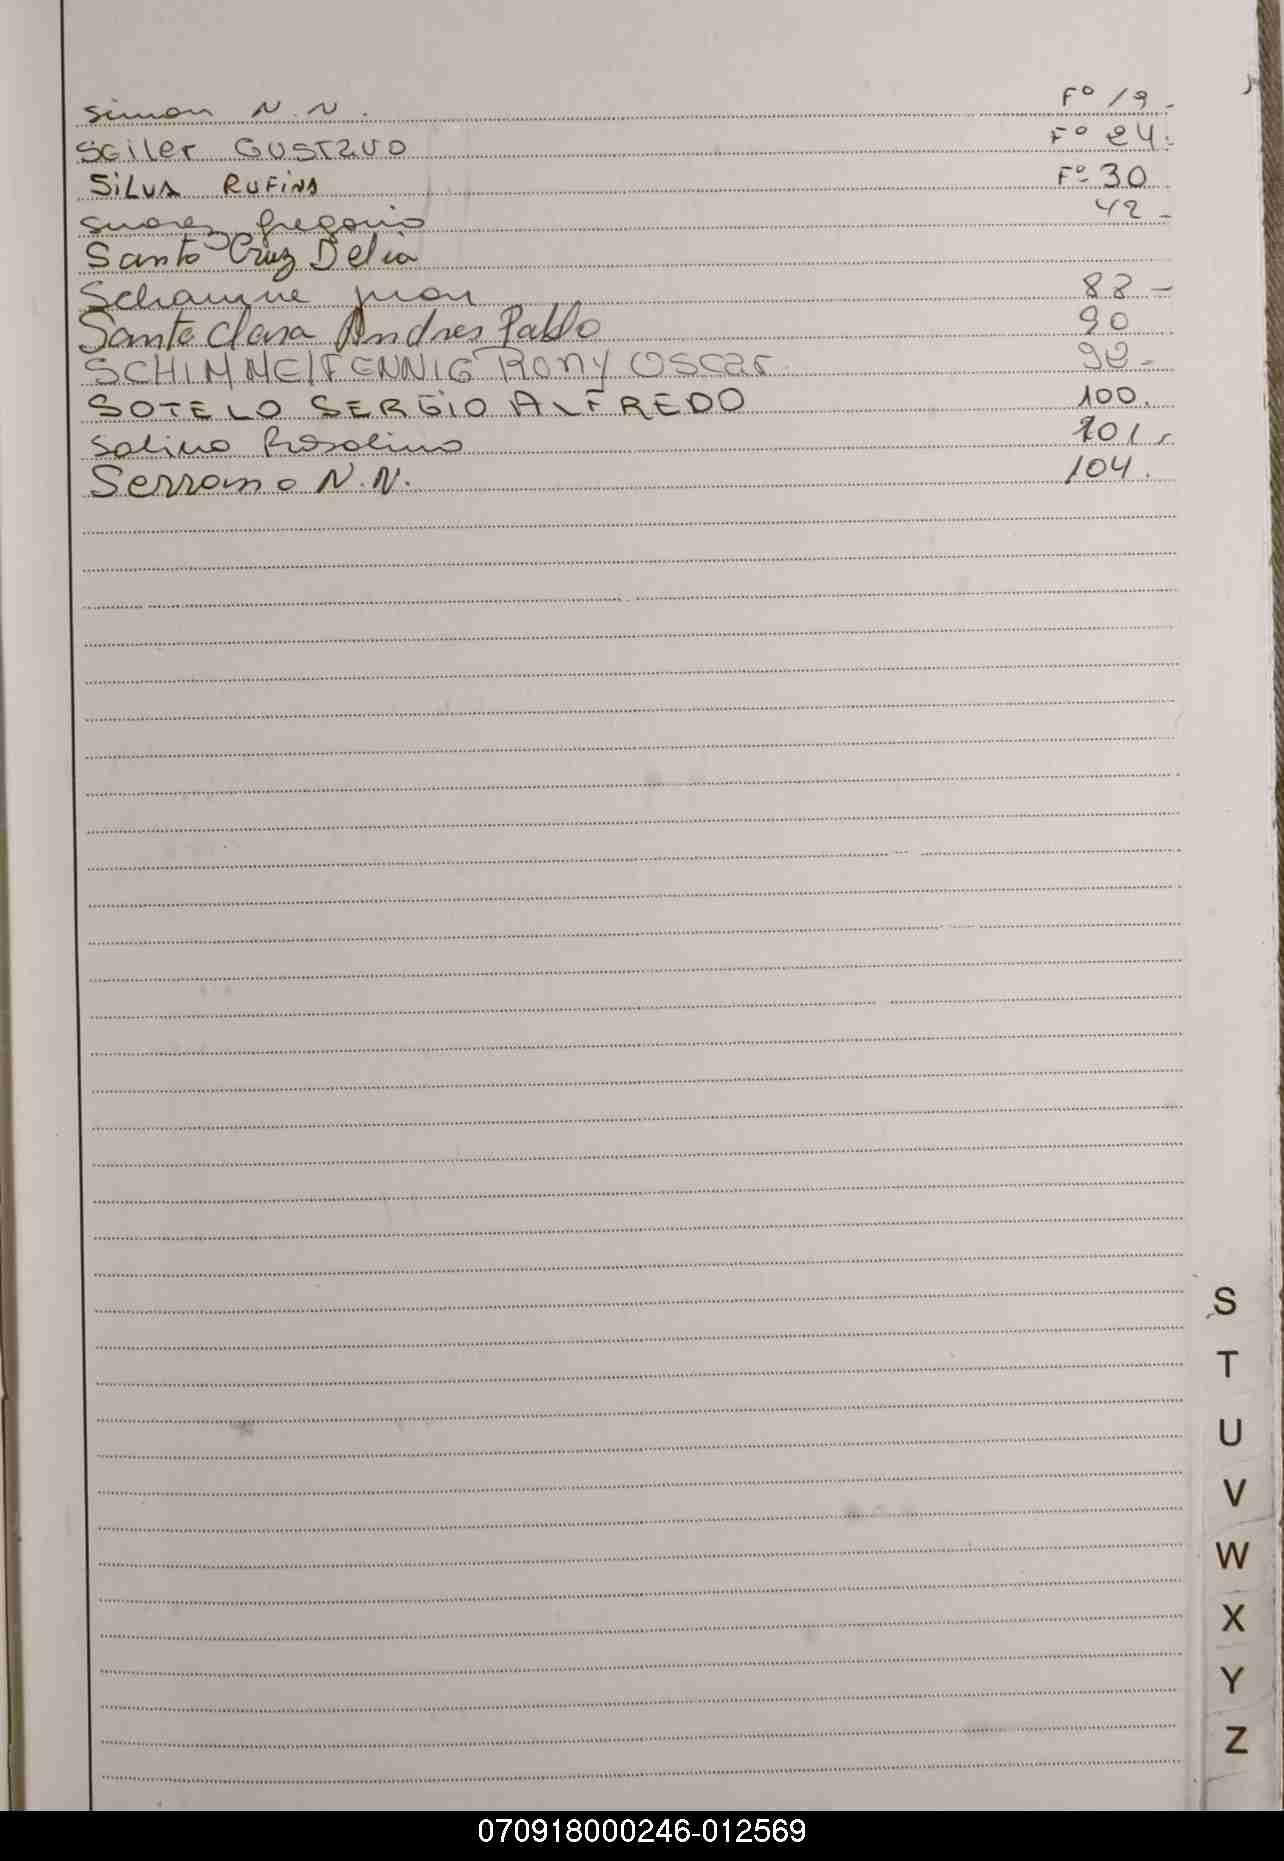 Simon N.N. Fº 19-
SGiler GUSTavo Fº 24.
SiLVA RUFINA Fº 30
Suarez Gregorio 42-
Santo Cruz Delia
Schamne Juan 88-
Santa Clara Andres Pablo 90
SCHIMMElFENNIG Rony Oscar 98-
SOTELO SERGIO ALFREDO 100.
Salina Rosalino 101.
Serrano N.N. 104.
S
T
U
V
W
X
Y
Z
070918000246-012569